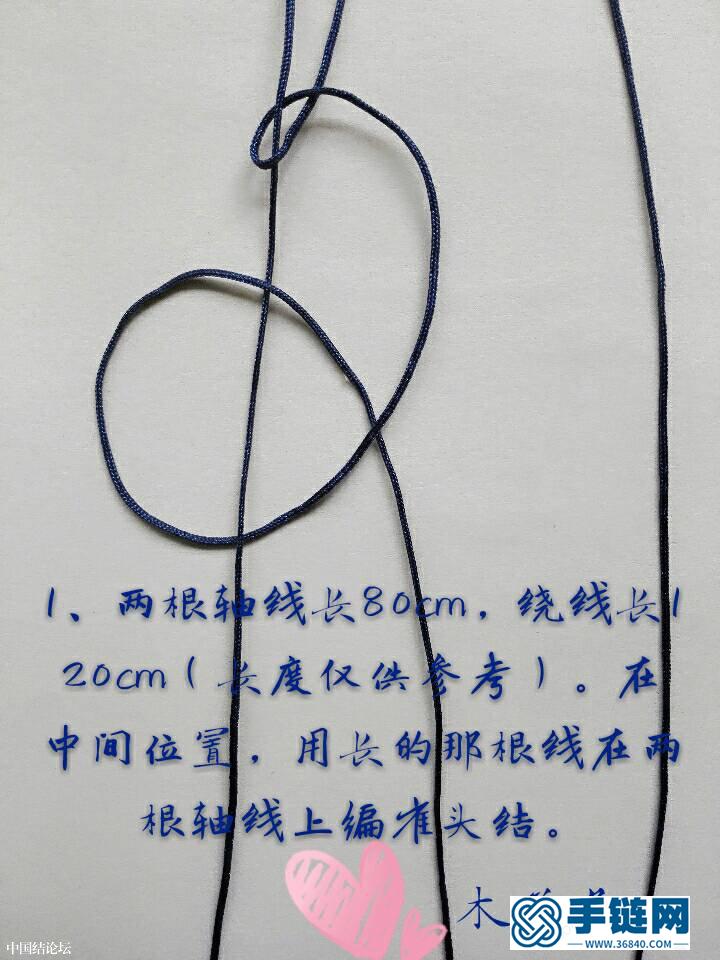 1、两根轴线长80cm，绕线长1
20cm（长度仅供参考）。在
中间位置，用长的那根线在两
根轴线上编雀头结。
木
手链网
www.36840.com
中国结论坛